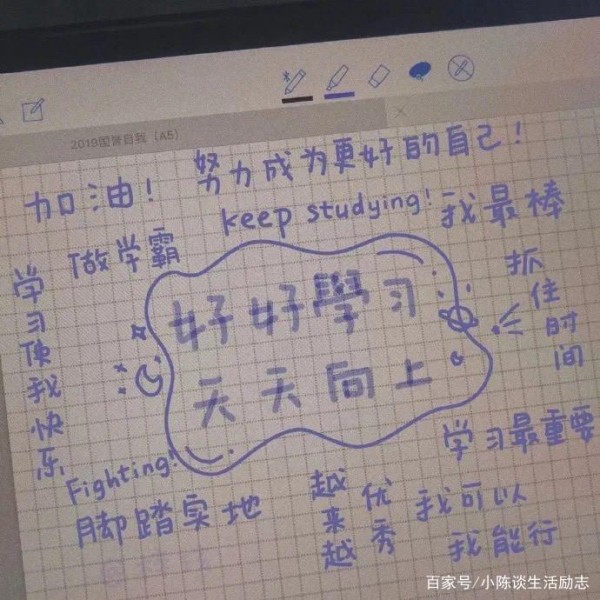 2019国誉自我（A5）
加油！
努力成为更好的自己！
keep studying!
我最棒
做学霸
学习使我快乐
好好學习
天天向上
抓住时间
学习最重要
Fighting!
脚踏实地
越来越优秀
我可以
我能行
百家号/小陈谈生活励志